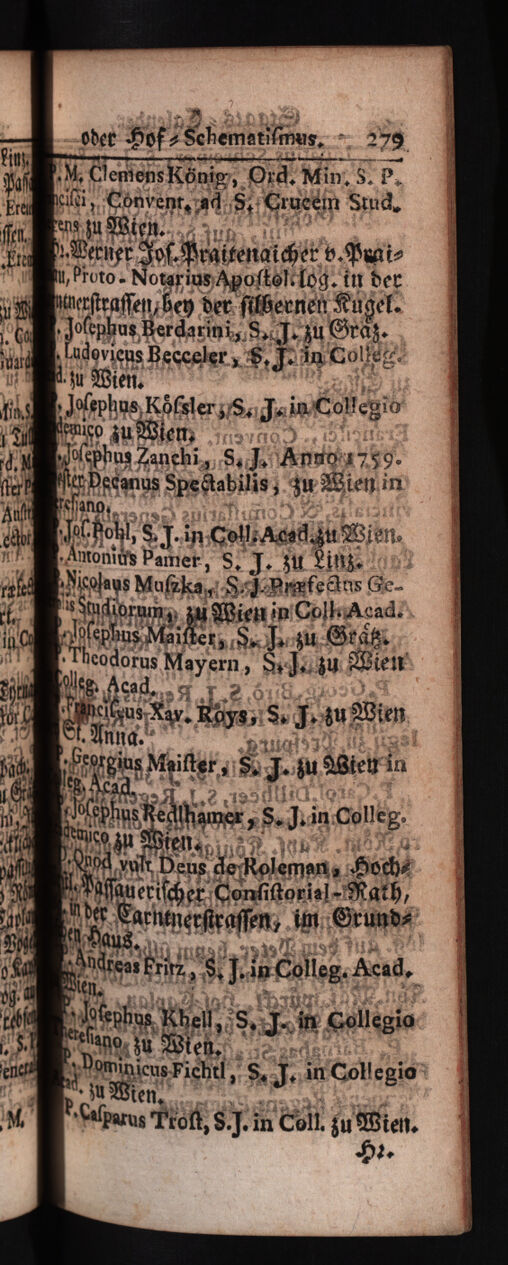 oder Hof-Schematismus. 279
P. M. Clemens König, Ord. Min. S. P.
ncisci, Convent. ad S. Crucem Stud.
ens zu Wien.
Hr. Werner Jos. Praitenaicher v. Prai-
au, Proto-Notarius Apostol. log. in der
rntnerstrassen, bey der silbernen Kugel.
P. Josephus Berdarini, S. J. zu Gräz.
P. Ludovicus Becceler, S. J. in Colleg.
d. zu Wien.
P. Josephus Kössler, S. J. in Collegio
demico zu Wien.
P. Josephus Zanchi, S. J. Anno 1759.
ster Decanus Spectabilis, zu Wien in
resiano.
P. Jos. Pohl, S. J. in Coll. Acad. zu Wien.
P. Antonius Pamer, S. J. zu Linz.
P. Nicolaus Muszka, S. J. Præfectus Ge-
lis Studiorum, zu Wien in Coll. Acad.
P. Josephus Maister, S. J. zu Grätz.
P. Theodorus Mayern, S. J. zu Wien
Colleg. Acad.
Franciscus Xav. Roys, S. J. zu Wien
St. Anna.
P. Georgius Maister, S. J. zu Wien in
leg. Acad.
P. Josephus Redlhamer, S. J. in Colleg.
demico zu Wien.
P. Quod vult Deus de Roleman, Hoch-
Passauerischer Consistorial-Rath,
in der Carntnerstrassen, im Grund-
Haus.
P. Andreas Fritz, S. J. in Colleg. Acad.
Wien.
P. Josephus Khell, S. J. in Collegio
heresiano zu Wien.
P. Dominicus Fichtl, S. J. in Collegio
Acad. zu Wien.
P. Casparus Trost, S. J. in Coll. zu Wien.
Hr.